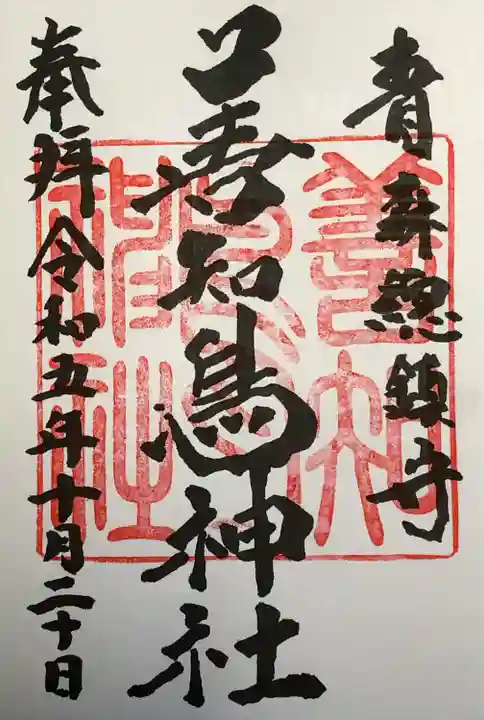 青森総鎮守
善知鳥神社
奉拝 令和五年十月二十日
善知鳥神社